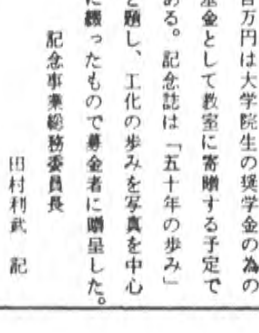 百万円は大学院生の奨学金の為の
基金として教室に寄贈する予定で
ある。記念誌は「五十年の歩み」
と題し、工化の歩みを写真を中心
に綴ったもので募金者に贈呈した。
記念事業総務委員長
田村利武 記